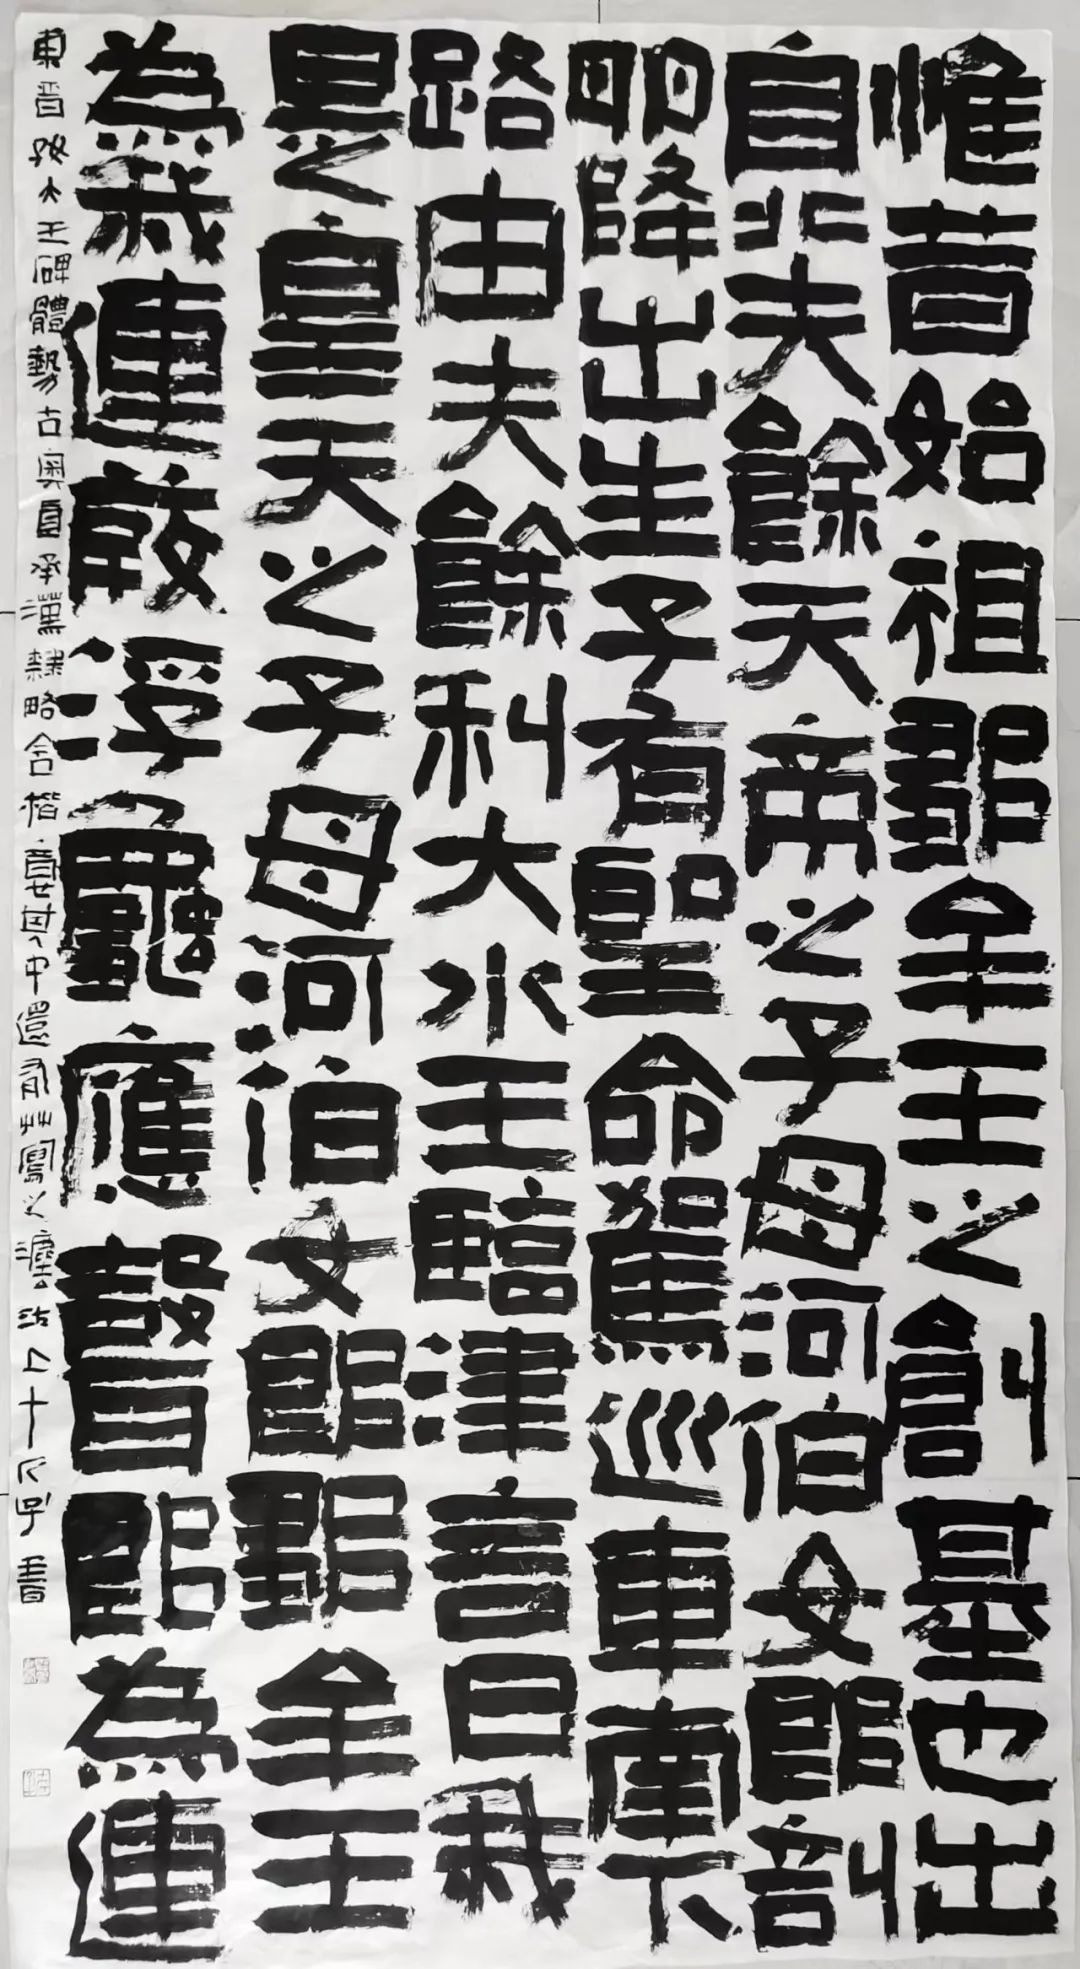 惟昔始祖鄒牟王之創基也出
自北夫餘天帝之子母河伯女郎剖
卵降出生子有聖命駕巡車南下
路由夫餘利大水王臨津言曰我
是皇天之子母河伯女郎鄒牟王
為我連葭浮龜應聲即為連
東晉好大王碑體勢古奧直承漢隸略含楷意其中還有草寫之法書